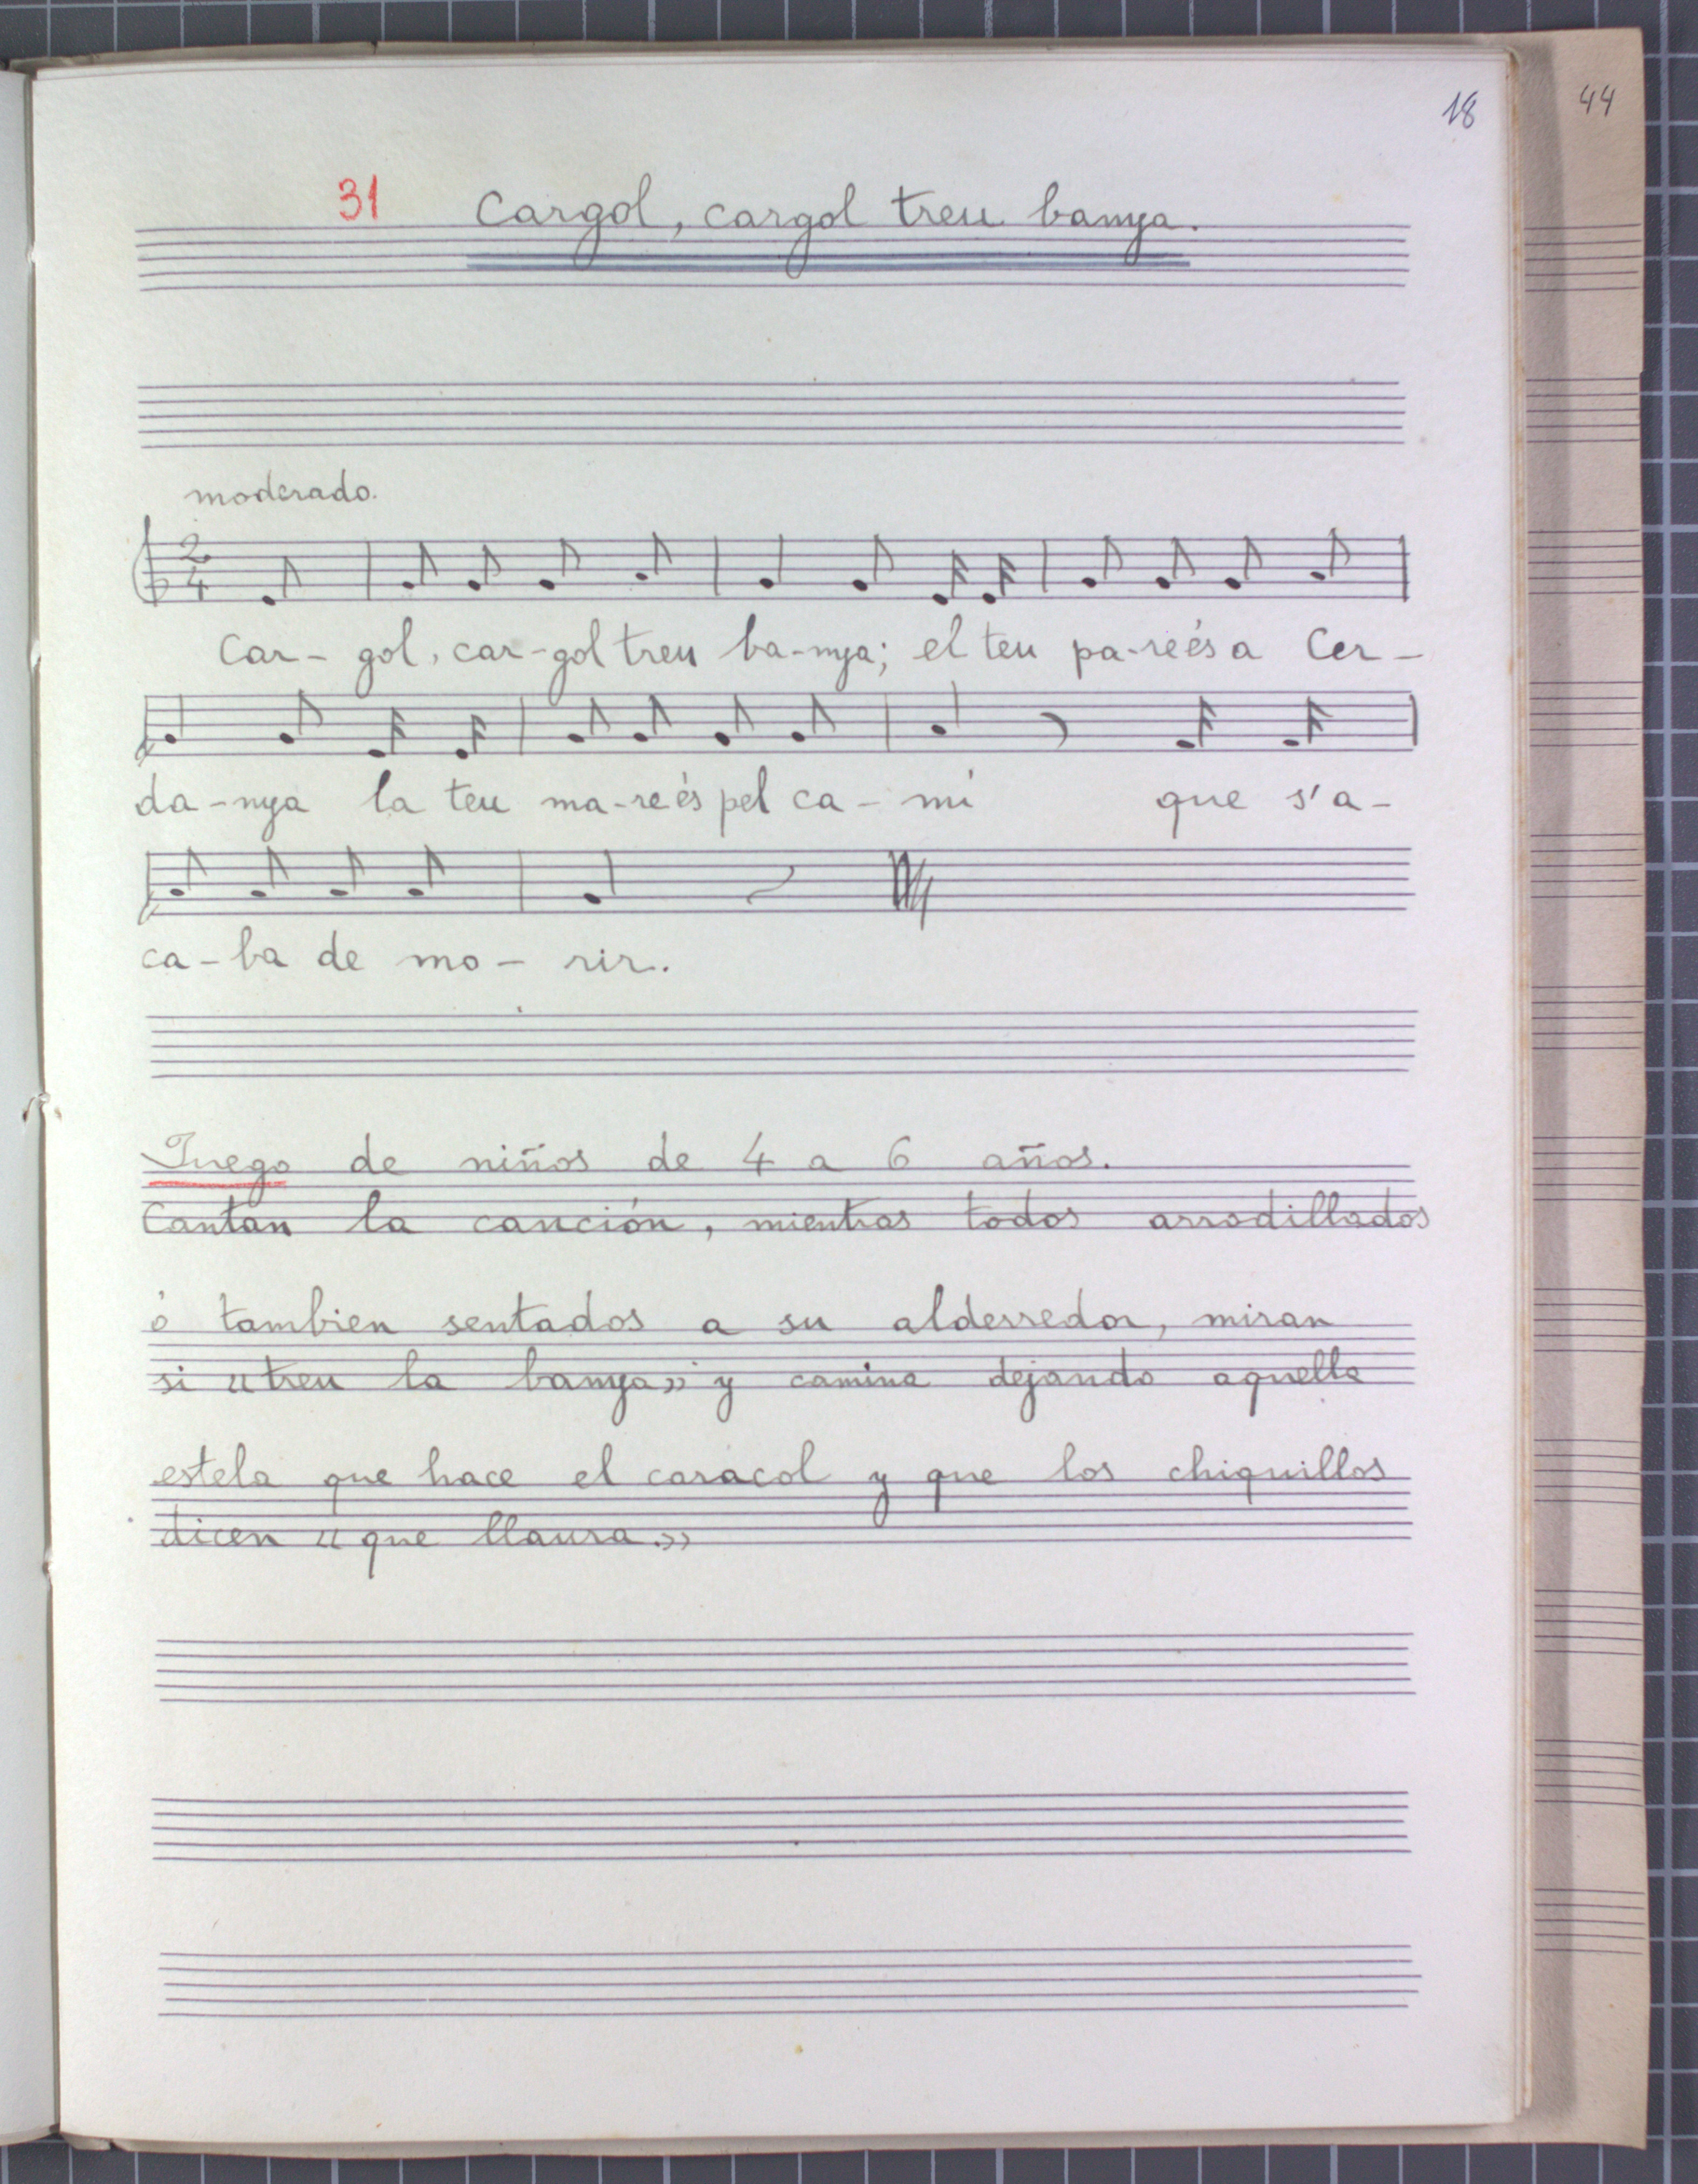 18
44
31 Cargol, cargol treu banya.
moderado.
2
4
Car- gol, car-gol treu ba-nya; el teu pa-re és a Cer-
da-nya la teu ma-re és pel ca-mí que s'a-
ca-ba de mo- rir.
Juego de niños de 4 a 6 años.
Cantan la canción, mientras todos arrodillados
ó tambien sentados a su alderredor, miran
si «treu la banya» y camina dejando aquella
estela que hace el caracol y que los chiquillos
dicen «que llaura.»